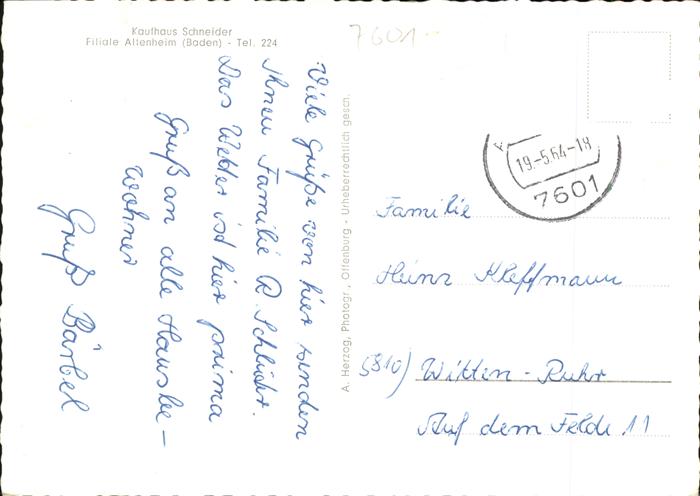 Kaufhaus Schneider
Filiale Altenheim (Baden) - Tel. 224
7601-
Viele Grüße von hier senden
Ihnen Familie R. Schlüter.
Das Wetter ist hier prima
Gruß an alle Hausbe-
wohner
Gruß Bärbel
A. Herzog, Photogr., Offenburg - Urheberrechtlich gesch.
19.-5.64-18
7601
Familie
Heinz Kleffmann
5810) Witten-Ruhr
Auf dem Felde 11